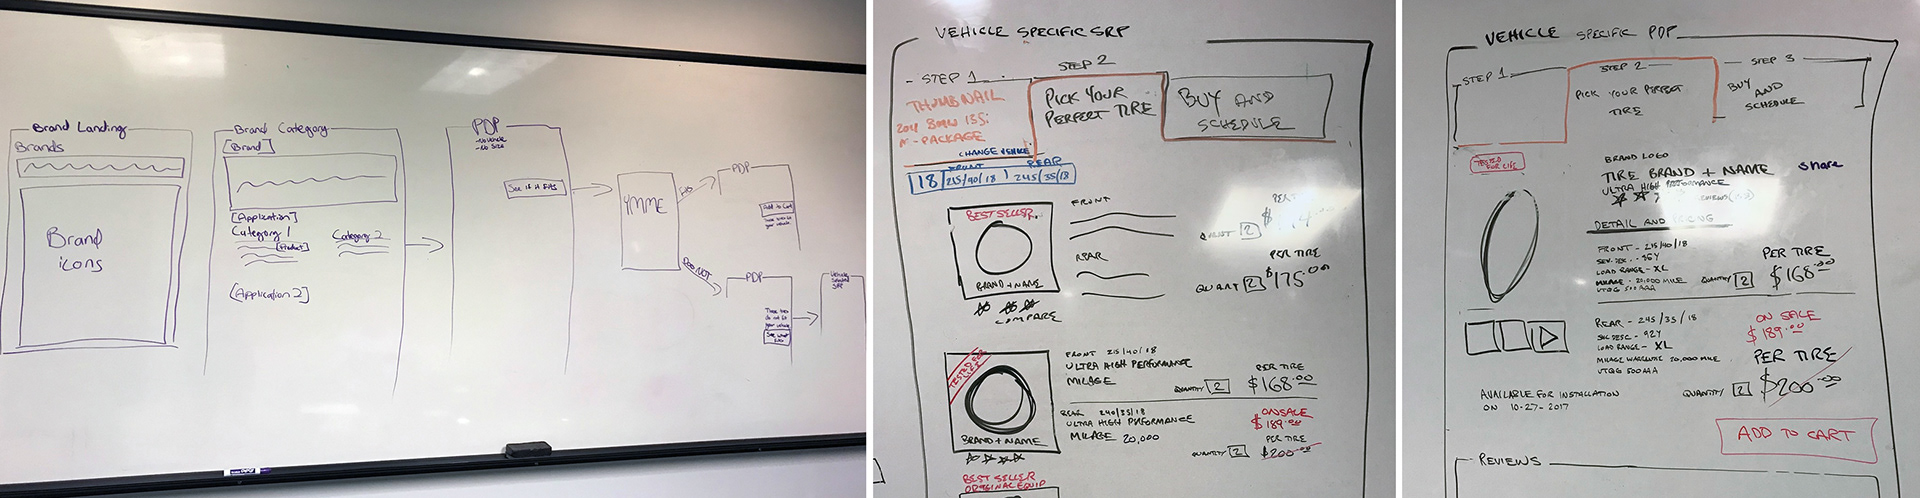 Brand Landing
Brands
Brand
icons
Brand Category
Brand
[Application]
Category 1
Product
Category 2
[Application 2]
PDP
-No Vehicle
-No Size
See if it fits
YMME
Fits
Does NOT
PDP
Add to Cart
These tires
fit your
vehicle
PDP
These tires
do not fit
your vehicle
See what
fits
Vehicle
Specific
SRP
VEHICLE SPECIFIC SRP
STEP 1
STEP 2
THUMBNAIL
BMW 135i
M-PACKAGE
CHANGE VEHICLE
PICK YOUR
PERFECT TIRE
BUY AND
SCHEDULE
FRONT
REAR
18
215/40/18
245/35/18
BEST SELLER
BRAND + NAME
COMPARE
FRONT
REAR
PER TIRE
QUANT 2
PER TIRE
QUANT 2 $175.00
TESTED FOR LIFE
BRAND + NAME
FRONT 215/40/18
ULTRA HIGH PERFORMANCE
MILAGE
PER TIRE
QUANTITY 2 $168.00
REAR 240/35/18
ULTRA HIGH PERFORMANCE
MILAGE 20,000
ON SALE
$189.00
PER TIRE
QUANTITY 2 $200.00
BEST SELLER
ORIGINAL EQUIP
VEHICLE SPECIFIC PDP
STEP 1
STEP 2
PICK YOUR PERFECT
TIRE
STEP 3
BUY AND
SCHEDULE
TESTED
FOR LIFE
BRAND LOGO
TIRE BRAND + NAME
share
ULTRA HIGH PERFORMANCE
DETAIL AND PRICING
FRONT - 215/40/18
LOAD RANGE - XL
MILEAGE - 20,000 MILE
UTQG 500 AAA
PER TIRE
QUANTITY 2 $168.00
REAR - 245/35/18
SVC DESC - 92Y
LOAD RANGE - XL
MILAGE WARRANTY 20,000 MILE
UTQG 500AAA
ON SALE
$189.00
PER TIRE
QUANTITY 2 $200.00
AVAILABLE FOR INSTALLATION
ON 10-27-2017
ADD TO CART
REVIEWS